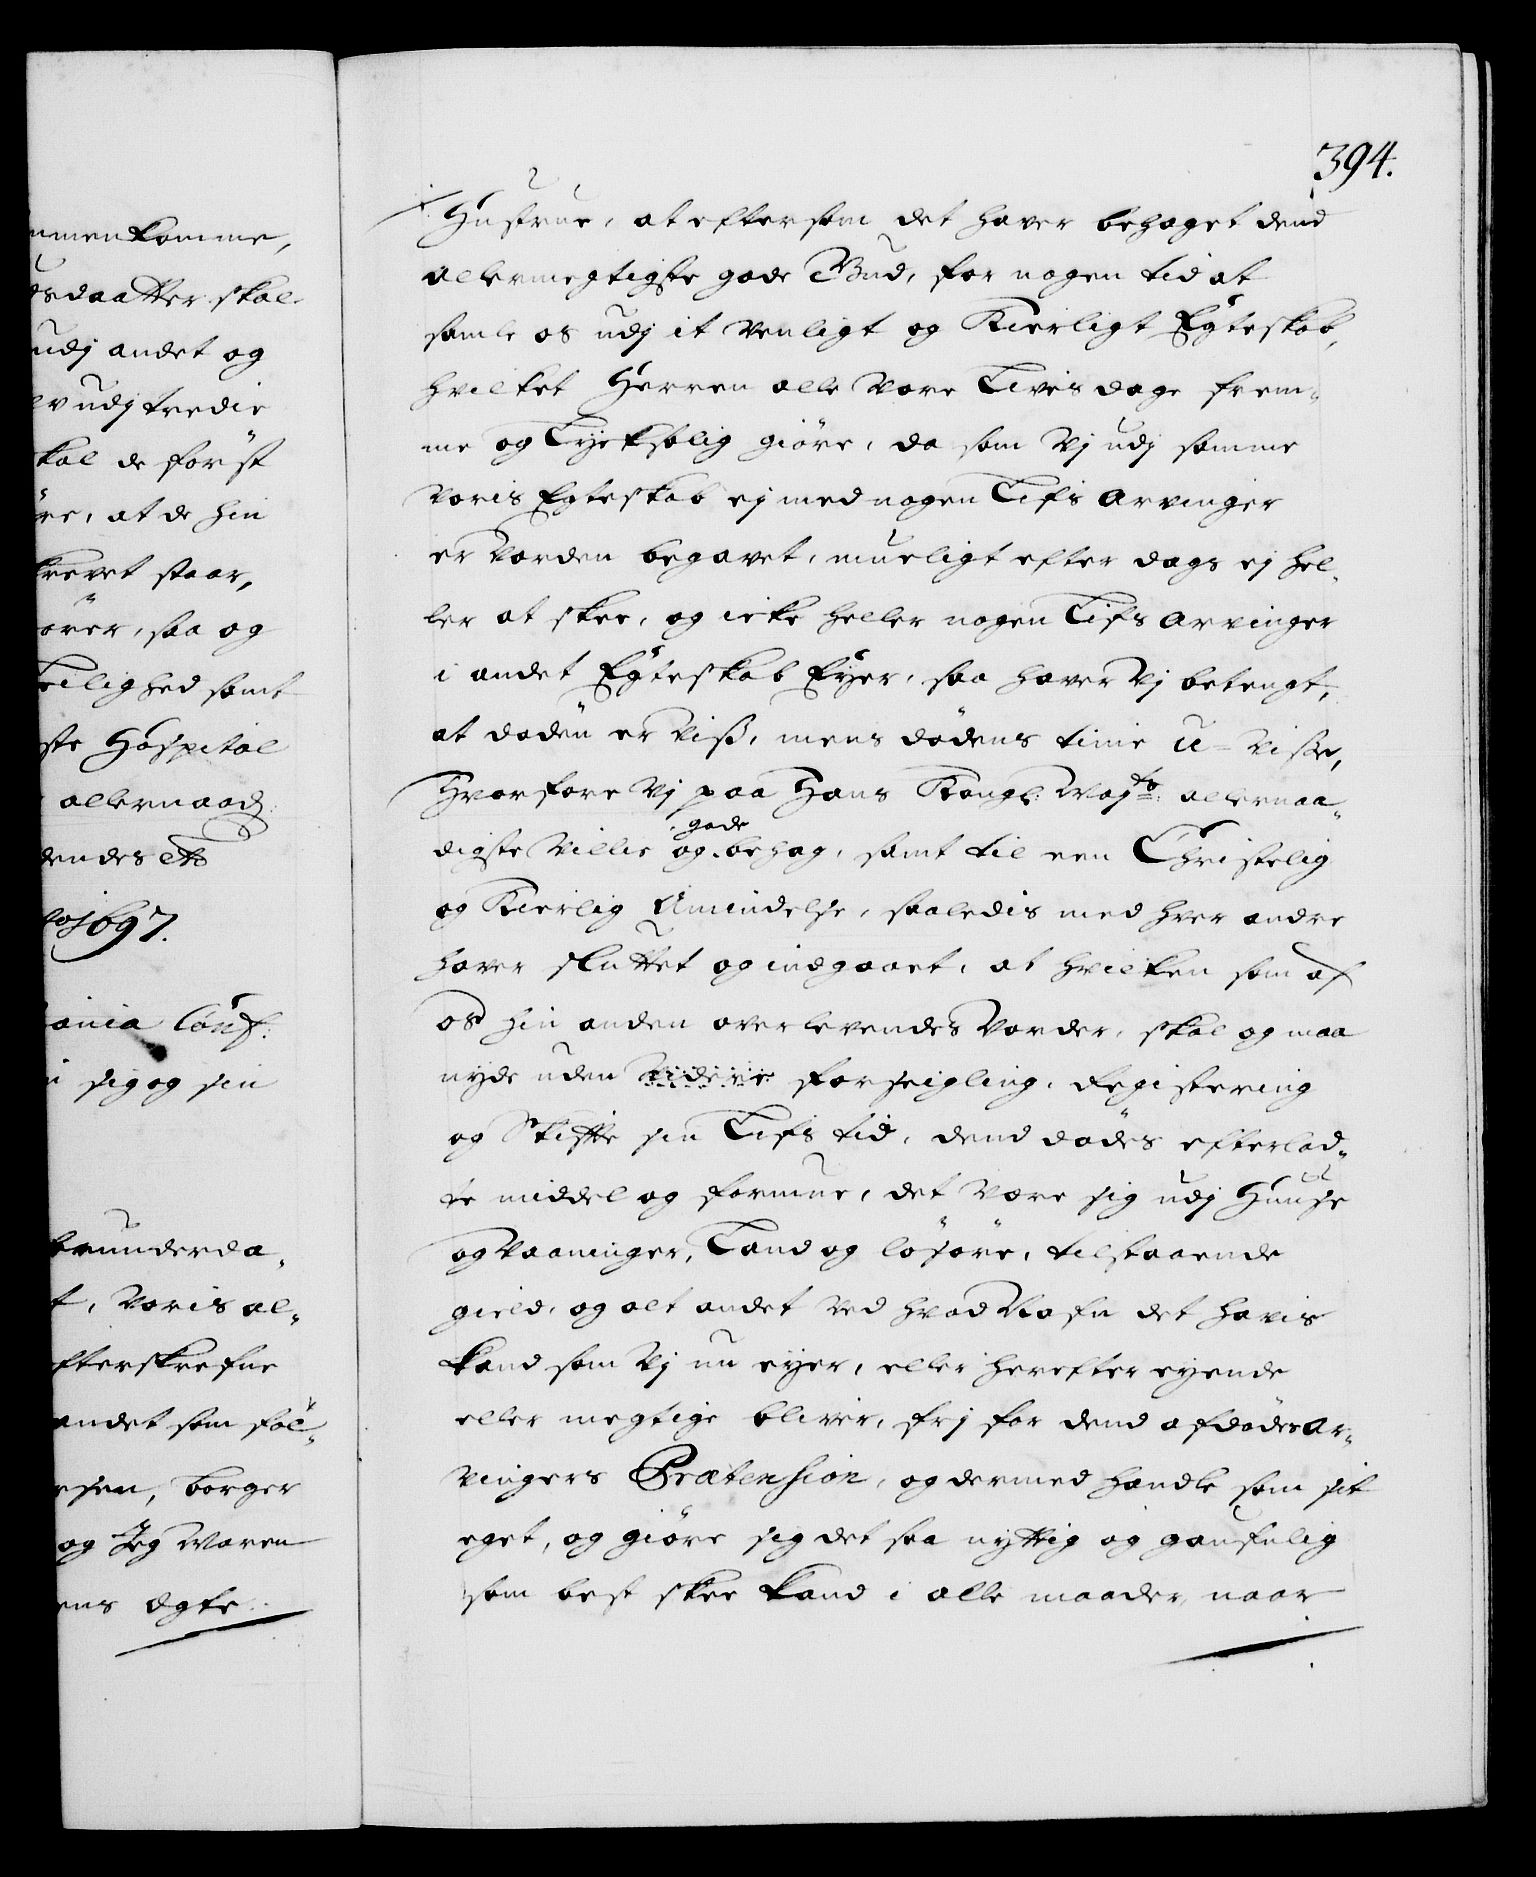 394.
mmenkomme,
dsdaatter skal
udj andet og
lv udj tredie
kal de først
øre, at de hin
krevet staar,
ører, saa og
leilighed samt
ste Hospital
allernaad:
dendes etc
1697.
ania Conf:
n sig og sin
brunderda„
t, voris al„
fterskrefne
andet som føl„
esen, borger
og Jeg Maren
ens ægte
Hustrue, at eftersom det haver behaget dend
allermegtigste gode Gud, for nogen tid at
samle os udj it venligt og Kierligt Egteskab,
hvilket Herren alle vore Livis dage frem„
me og Lycksalig giøre, da som Vj udj samme
voris Egteskab ej med nogen Lifs arvinger
er vorden begavet, mueligt efter dags ej hel„
ler at skee, og icke heller nogen Lifs arvinger
i andet Egteskab Eyer, saa haver Vj betengt,
at døden er viss, mens dødens time u-visse,
Hvorfore Vj paa Hans Kongl: Maj:ts allernaa„
digste villie og gode behag, samt til een Christelig
og Kierlig Amindelse, saaledis med hver andre
haver sluttet og indgaaet, at hvilken som af
os hin anden overlevendes vorder, skal og maa
nyde uden videre forseigling, Registering
og Skifte sin Lifs tid, dend dødes efterlad„
te middel og formue, det være sig udj Huuse
og vaaninger, Land og løsøre, tilstaaende
gield, og alt andet ved hvad Nafn det havis
kand som Vj nu eyer, eller herefter eyende
eller megtige bliver, frj for dend afdødes ar„
vingers Prætension, og dermed handle som sit
eget, og giøre sig det saa nyttig og gaufnlig
som best skee kand i alle maader, naar